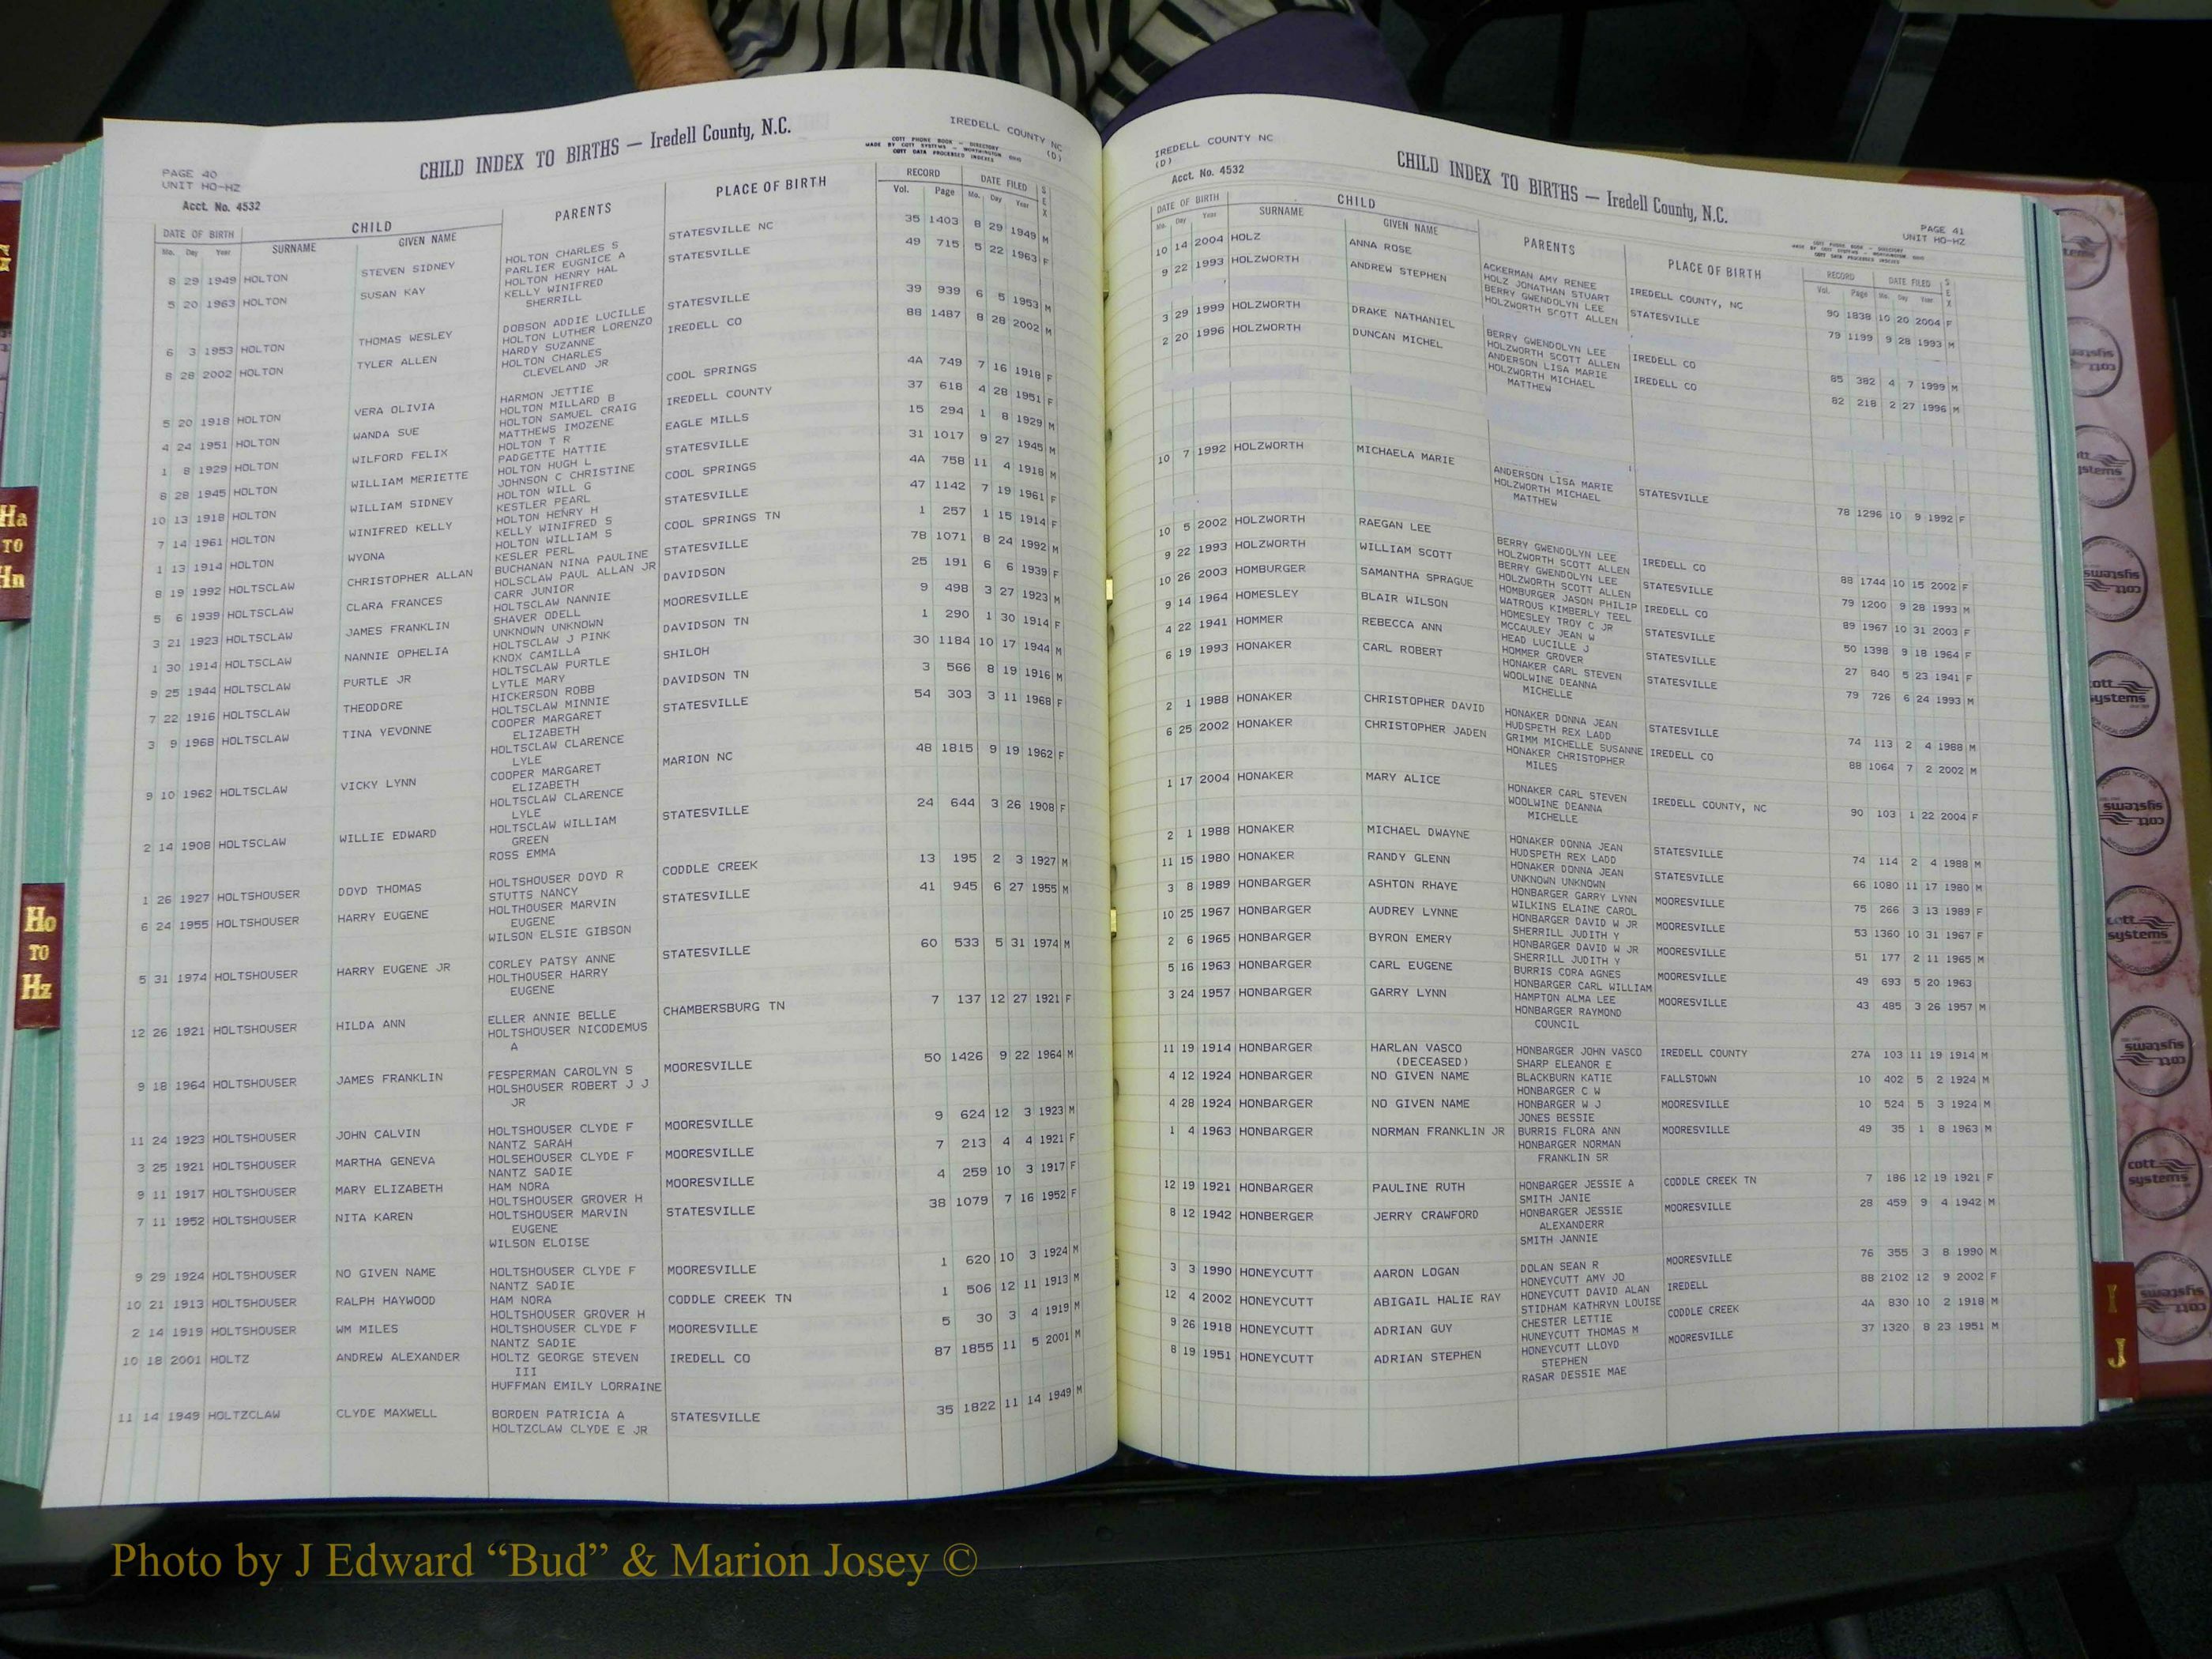 PAGE 40
UNIT HO-HZ
Acct. No. 4532
CHILD INDEX TO BIRTHS — Iredell County, N.C.
IREDELL COUNTY NC
(D)
COTT PHONE BOOK - DIRECTORY
MADE BY COTT SYSTEMS - WORTHINGTON OHIO
COTT DATA PROCESSED INDEXES
DATE OF BIRTH CHILD PARENTS PLACE OF BIRTH RECORD DATE FILED SEX
Mo. Day Year SURNAME GIVEN NAME Vol. Page Mo. Day Year
8 29 1949 HOLTON STEVEN SIDNEY HOLTON CHARLES S STATESVILLE NC 35 1403 8 29 1949 M
PARLIER EUGNICE A
5 20 1963 HOLTON SUSAN KAY HOLTON HENRY HAL STATESVILLE 49 715 5 22 1963 F
KELLY WINIFRED
SHERRILL
6 3 1953 HOLTON THOMAS WESLEY DOBSON ADDIE LUCILLE STATESVILLE 39 939 6 5 1953 M
HOLTON LUTHER LORENZO
8 28 2002 HOLTON TYLER ALLEN HARDY SUZANNE IREDELL CO 88 1487 8 28 2002 M
HOLTON CHARLES
CLEVELAND JR
5 20 1918 HOLTON VERA OLIVIA HARMON JETTIE COOL SPRINGS 4A 749 7 16 1918 F
HOLTON MILLARD B
4 24 1951 HOLTON WANDA SUE HOLTON SAMUEL CRAIG IREDELL COUNTY 37 618 4 28 1951 F
MATTHEWS IMOZENE
1 8 1929 HOLTON WILFORD FELIX HOLTON T R EAGLE MILLS 15 294 1 8 1929 M
PADGETTE HATTIE
8 28 1945 HOLTON WILLIAM MERIETTE HOLTON HUGH L STATESVILLE 31 1017 9 27 1945 M
JOHNSON C CHRISTINE
10 13 1918 HOLTON WILLIAM SIDNEY HOLTON WILL G COOL SPRINGS 4A 758 11 4 1918 M
KESTLER PEARL
7 14 1961 HOLTON WINIFRED KELLY HOLTON HENRY H STATESVILLE 47 1142 7 19 1961 F
KELLY WINIFRED S
1 13 1914 HOLTON WYONA HOLTON WILLIAM S COOL SPRINGS TN 1 257 1 15 1914 F
KESLER PERL
8 19 1992 HOLTSCLAW CHRISTOPHER ALLAN BUCHANAN NINA PAULINE STATESVILLE 78 1071 8 24 1992 M
HOLSCLAW PAUL ALLAN JR
5 6 1939 HOLTSCLAW CLARA FRANCES CARR JUNIOR DAVIDSON 25 191 6 6 1939 F
HOLTSCLAW NANNIE
3 21 1923 HOLTSCLAW JAMES FRANKLIN SHAVER ODELL MOORESVILLE 9 498 3 27 1923 M
UNKNOWN UNKNOWN
1 30 1914 HOLTSCLAW NANNIE OPHELIA HOLTSCLAW J PINK DAVIDSON TN 1 290 1 30 1914 F
KNOX CAMILLA
9 25 1944 HOLTSCLAW PURTLE JR HOLTSCLAW PURTLE SHILOH 30 1184 10 17 1944 M
LYTLE MARY
7 22 1916 HOLTSCLAW THEODORE HICKERSON ROBB DAVIDSON TN 3 566 8 19 1916 M
HOLTSCLAW MINNIE
3 9 1968 HOLTSCLAW TINA YEVONNE COOPER MARGARET STATESVILLE 54 303 3 11 1968 F
ELIZABETH
HOLTSCLAW CLARENCE
LYLE
9 10 1962 HOLTSCLAW VICKY LYNN COOPER MARGARET MARION NC 48 1815 9 19 1962 F
ELIZABETH
HOLTSCLAW CLARENCE
LYLE
2 14 1908 HOLTSCLAW WILLIE EDWARD HOLTSCLAW WILLIAM STATESVILLE 24 644 3 26 1908 F
GREEN
ROSS EMMA
1 26 1927 HOLTSHOUSER DOYD THOMAS HOLTSHOUSER DOYD R CODDLE CREEK 13 195 2 3 1927 M
STUTTS NANCY
6 24 1955 HOLTSHOUSER HARRY EUGENE HOLTHOUSER MARVIN STATESVILLE 41 945 6 27 1955 M
EUGENE
WILSON ELSIE GIBSON
5 31 1974 HOLTSHOUSER HARRY EUGENE JR CORLEY PATSY ANNE STATESVILLE 60 533 5 31 1974 M
HOLTHOUSER HARRY
EUGENE
12 26 1921 HOLTSHOUSER HILDA ANN ELLER ANNIE BELLE CHAMBERSBURG TN 7 137 12 27 1921 F
HOLTSHOUSER NICODEMUS
A
9 18 1964 HOLTSHOUSER JAMES FRANKLIN FESPERMAN CAROLYN S MOORESVILLE 50 1426 9 22 1964 M
HOLSHOUSER ROBERT J J
JR
11 24 1923 HOLTSHOUSER JOHN CALVIN HOLTSHOUSER CLYDE F MOORESVILLE 9 624 12 3 1923 M
NANTZ SARAH
3 25 1921 HOLTSHOUSER MARTHA GENEVA HOLSEHOUSER CLYDE F MOORESVILLE 7 213 4 4 1921 F
NANTZ SADIE
9 11 1917 HOLTSHOUSER MARY ELIZABETH HAM NORA MOORESVILLE 4 259 10 3 1917 F
HOLTSHOUSER GROVER H
7 11 1952 HOLTSHOUSER NITA KAREN HOLTSHOUSER MARVIN STATESVILLE 38 1079 7 16 1952 F
EUGENE
WILSON ELOISE
9 29 1924 HOLTSHOUSER NO GIVEN NAME HOLTSHOUSER CLYDE F MOORESVILLE 1 620 10 3 1924 M
NANTZ SADIE
10 21 1913 HOLTSHOUSER RALPH HAYWOOD HAM NORA CODDLE CREEK TN 1 506 12 11 1913 M
HOLTSHOUSER GROVER H
2 14 1919 HOLTSHOUSER WM MILES HOLTSHOUSER CLYDE F MOORESVILLE 5 30 3 4 1919 M
NANTZ SADIE
10 18 2001 HOLTZ ANDREW ALEXANDER HOLTZ GEORGE STEVEN IREDELL CO 87 1855 11 5 2001 M
III
HUFFMAN EMILY LORRAINE
11 14 1949 HOLTZCLAW CLYDE MAXWELL BORDEN PATRICIA A STATESVILLE 35 1822 11 14 1949 M
HOLTZCLAW CLYDE E JR
IREDELL COUNTY NC
(D)
Acct. No. 4532
CHILD INDEX TO BIRTHS — Iredell County, N.C.
PAGE 41
UNIT HO-HZ
COTT PHONE BOOK - DIRECTORY
MADE BY COTT SYSTEMS - WORTHINGTON OHIO
COTT DATA PROCESSED INDEXES
DATE OF BIRTH CHILD PARENTS PLACE OF BIRTH RECORD DATE FILED SEX
Mo. Day Year SURNAME GIVEN NAME Vol. Page Mo. Day Year
10 14 2004 HOLZ ANNA ROSE ACKERMAN AMY RENEE IREDELL COUNTY, NC 90 1838 10 20 2004 F
HOLZ JONATHAN STUART
9 22 1993 HOLZWORTH ANDREW STEPHEN BERRY GWENDOLYN LEE STATESVILLE 79 1199 9 28 1993 M
HOLZWORTH SCOTT ALLEN
3 29 1999 HOLZWORTH DRAKE NATHANIEL BERRY GWENDOLYN LEE IREDELL CO 85 382 4 7 1999 M
HOLZWORTH SCOTT ALLEN
2 20 1996 HOLZWORTH DUNCAN MICHEL ANDERSON LISA MARIE IREDELL CO 82 218 2 27 1996 M
HOLZWORTH MICHAEL
MATTHEW
10 7 1992 HOLZWORTH MICHAELA MARIE ANDERSON LISA MARIE STATESVILLE 78 1296 10 9 1992 F
HOLZWORTH MICHAEL
MATTHEW
10 5 2002 HOLZWORTH RAEGAN LEE BERRY GWENDOLYN LEE IREDELL CO 88 1744 10 15 2002 F
HOLZWORTH SCOTT ALLEN
9 22 1993 HOLZWORTH WILLIAM SCOTT BERRY GWENDOLYN LEE STATESVILLE 79 1200 9 28 1993 M
HOLZWORTH SCOTT ALLEN
10 26 2003 HOMBURGER SAMANTHA SPRAGUE HOMBURGER JASON PHILIP IREDELL CO 89 1967 10 31 2003 F
WATROUS KIMBERLY TEEL
9 14 1964 HOMESLEY BLAIR WILSON HOMESLEY TROY C JR STATESVILLE 50 1398 9 18 1964 F
MCCAULEY JEAN W
4 22 1941 HOMMER REBECCA ANN HEAD LUCILLE J STATESVILLE 27 840 5 23 1941 F
HOMMER GROVER
6 19 1993 HONAKER CARL ROBERT HONAKER CARL STEVEN STATESVILLE 79 726 6 24 1993 M
WOOLWINE DEANNA
MICHELLE
2 1 1988 HONAKER CHRISTOPHER DAVID HONAKER DONNA JEAN STATESVILLE 74 113 2 4 1988 M
HUDSPETH REX LADD
6 25 2002 HONAKER CHRISTOPHER JADEN GRIMM MICHELLE SUSANNE IREDELL CO 88 1064 7 2 2002 M
HONAKER CHRISTOPHER
MILES
1 17 2004 HONAKER MARY ALICE HONAKER CARL STEVEN IREDELL COUNTY, NC 90 103 1 22 2004 F
WOOLWINE DEANNA
MICHELLE
2 1 1988 HONAKER MICHAEL DWAYNE HONAKER DONNA JEAN STATESVILLE 74 114 2 4 1988 M
HUDSPETH REX LADD
11 15 1980 HONAKER RANDY GLENN HONAKER DONNA JEAN STATESVILLE 66 1080 11 17 1980 M
UNKNOWN UNKNOWN
3 8 1989 HONBARGER ASHTON RHAYE HONBARGER GARRY LYNN MOORESVILLE 75 266 3 13 1989 F
WILKINS ELAINE CAROL
10 25 1967 HONBARGER AUDREY LYNNE HONBARGER DAVID W JR MOORESVILLE 53 1360 10 31 1967 F
SHERRILL JUDITH Y
2 6 1965 HONBARGER BYRON EMERY HONBARGER DAVID W JR MOORESVILLE 51 177 2 11 1965 M
SHERRILL JUDITH Y
5 16 1963 HONBARGER CARL EUGENE BURRIS CORA AGNES MOORESVILLE 49 693 5 20 1963
HONBARGER CARL WILLIAM
3 24 1957 HONBARGER GARRY LYNN HAMPTON ALMA LEE MOORESVILLE 43 485 3 26 1957 M
HONBARGER RAYMOND
COUNCIL
11 19 1914 HONBARGER HARLAN VASCO HONBARGER JOHN VASCO IREDELL COUNTY 27A 103 11 19 1914 M
(DECEASED) SHARP ELEANOR E
4 12 1924 HONBARGER NO GIVEN NAME BLACKBURN KATIE FALLSTOWN 10 402 5 2 1924 M
HONBARGER C W
4 28 1924 HONBARGER NO GIVEN NAME HONBARGER W J MOORESVILLE 10 524 5 3 1924 M
JONES BESSIE
1 4 1963 HONBARGER NORMAN FRANKLIN JR BURRIS FLORA ANN MOORESVILLE 49 35 1 8 1963 M
HONBARGER NORMAN
FRANKLIN SR
12 19 1921 HONBARGER PAULINE RUTH HONBARGER JESSIE A CODDLE CREEK TN 7 186 12 19 1921 F
SMITH JANIE
8 12 1942 HONBERGER JERRY CRAWFORD HONBARGER JESSIE MOORESVILLE 28 459 9 4 1942 M
ALEXANDERR
SMITH JANNIE
3 3 1990 HONEYCUTT AARON LOGAN DOLAN SEAN R MOORESVILLE 76 355 3 8 1990 M
HONEYCUTT AMY JO
12 4 2002 HONEYCUTT ABIGAIL HALIE RAY HONEYCUTT DAVID ALAN IREDELL 88 2102 12 9 2002 F
STIDHAM KATHRYN LOUISE
9 26 1918 HONEYCUTT ADRIAN GUY CHESTER LETTIE CODDLE CREEK 4A 830 10 2 1918 M
HUNEYCUTT THOMAS M
8 19 1951 HONEYCUTT ADRIAN STEPHEN HONEYCUTT LLOYD MOORESVILLE 37 1320 8 23 1951 M
STEPHEN
RASAR DESSIE MAE
Ha
TO
Hn
Ho
TO
Hz
I
J
cott
systems
Photo by J Edward “Bud” & Marion Josey ©